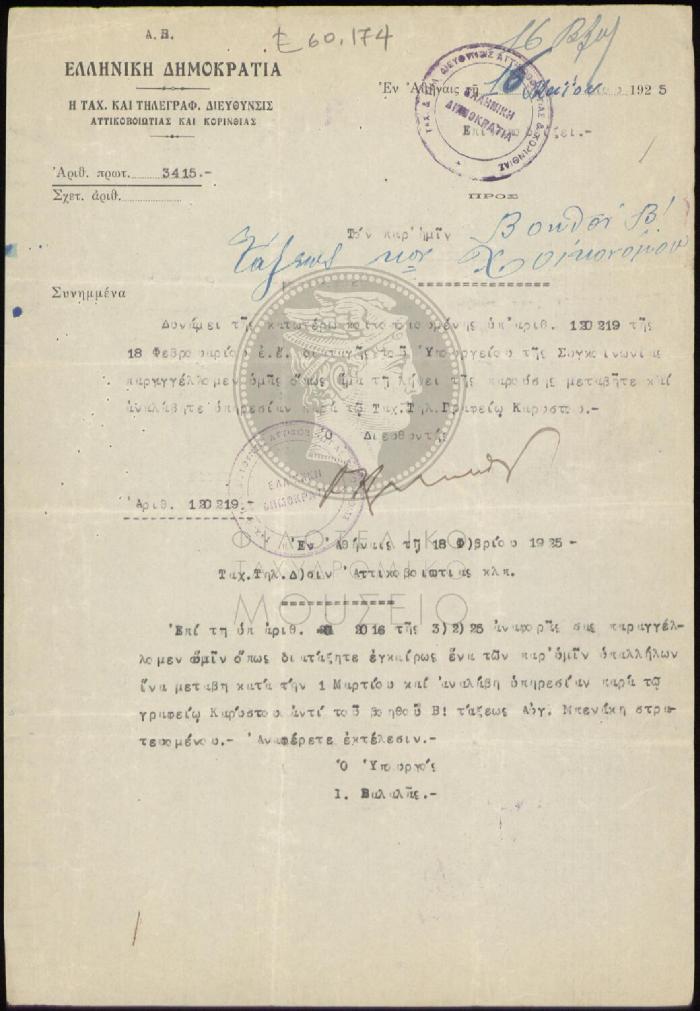 Α.Β.
£ 60.174
ΕΛΛΗΝΙΚΗ ΔΗΜΟΚΡΑΤΙΑ
Η ΤΑΧ. ΚΑΙ ΤΗΛΕΓΡΑΦ. ΔΙΕΥΘΥΝΣΙΣ
ΑΤΤΙΚΟΒΟΙΩΤΙΑΣ ΚΑΙ ΚΟΡΙΝΘΙΑΣ
Ἐν Ἀθήναις τῇ 1925
ΕΛΛΗΝΙΚΗ
ΔΗΜΟΚΡΑΤΙΑ
Ἀριθ. πρωτ. 3415.-
Σχετ. ἀριθ.
ΠΡΟΣ
Τόν παρ'ἡμῖν Βοηθόν Β!
τάξεως κον Χ. Οἰκονόμου
Συνημμένα
Δυνάμει τῆς κατωτέρω κοινοποιουμένης ὑπ'ἀριθ. 120219 τῆς
18 Φεβρουαρίου ἐ.ἔ. διαταγῆς τοῦ Ὑπουργείου τῆς Συγκοινωνίας
παραγγέλλομεν ὑμῖν ὅπως ἅμα τῇ λήψει τῆς παρούσης μεταβῆτε καί
ἀναλάβητε ὑπηρεσίαν παρά τῷ Ταχ.Τηλ.Γραφείῳ Καρύστου.-
Ὁ Διευθυντής
ΕΛΛΗΝΙΚΗ
ΔΗΜΟΚΡΑΤΙΑ
Ἀριθ. 120219.-
Ἐν Ἀθήναις τῇ 18 Φ)βρίου 1925-
Ταχ.Τηλ.Δ)σιν Ἀττικοβοιωτίας κλπ.
ΦΙΛΟΤΕΛΙΚΟ
ΤΑΧΥΔΡΟΜΙΚΟ
ΜΟΥΣΕΙΟ
Ἐπί τῇ ὑπ ἀριθ. 2016 τῆς 3)2)25 ἀναφορῆς σας παραγγέλ-
λομεν ὑμῖν ὅπως διατάξητε ἐγκαίρως ἕνα τῶν παρ'ὑμῖν ὑπαλλήλων
ἵνα μεταβῇ κατά τήν 1 Μαρτίου καί ἀναλάβῃ ὑπηρεσίαν παρά τῷ
γραφείῳ Καρύστου ἀντί τοῦ βοηθοῦ Β! τάξεως Αὐγ. Μπενάκη στρα-
τευομένου.- Ἀναφέρετε ἐκτέλεσιν.-
Ὁ Ὑπουργός
Ι. Βαλαλᾶς.-